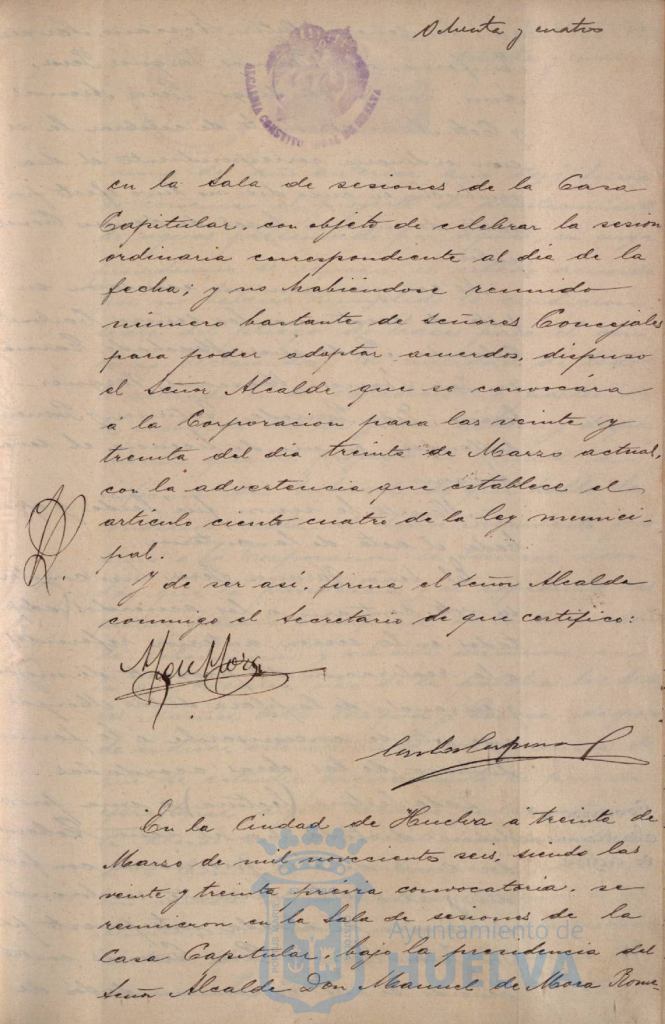 Ochenta y cuatro
ALCALDIA CONSTITUCIONAL DE HUELVA
en la Sala de sesiones de la Casa
Capitular, con objeto de celebrar la sesion
ordinaria correspondiente al dia de la
fecha; y no habiéndose reunido
número bastante de Señores Concejales
para poder adoptar acuerdos, dispuso
el Señor Alcalde que se convocára
á la Corporacion para las veinte y
treinta del dia treinta de Marzo actual,
con la advertencia que establece el
artículo ciento cuatro de la ley munici-
pal.
Y de ser así, firma el Señor Alcalde
conmigo el Secretario de que certifico:
M de Mora
En la Ciudad de Huelva á treinta de
Marzo de mil novecientos seis, siendo las
veinte y treinta prévia convocatoria, se
reunieron en la Sala de sesiones de la
Casa Capitular, bajo la presidencia del
Señor Alcalde Don Manuel de Mora Rome-
Ayuntamiento de
HUELVA